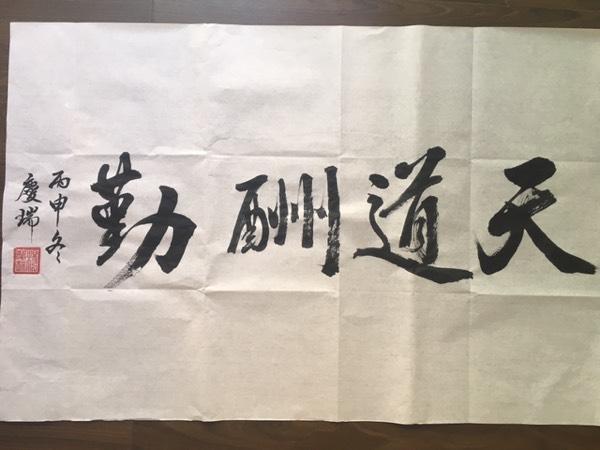 天道酬勤
丙申冬
慶瑞